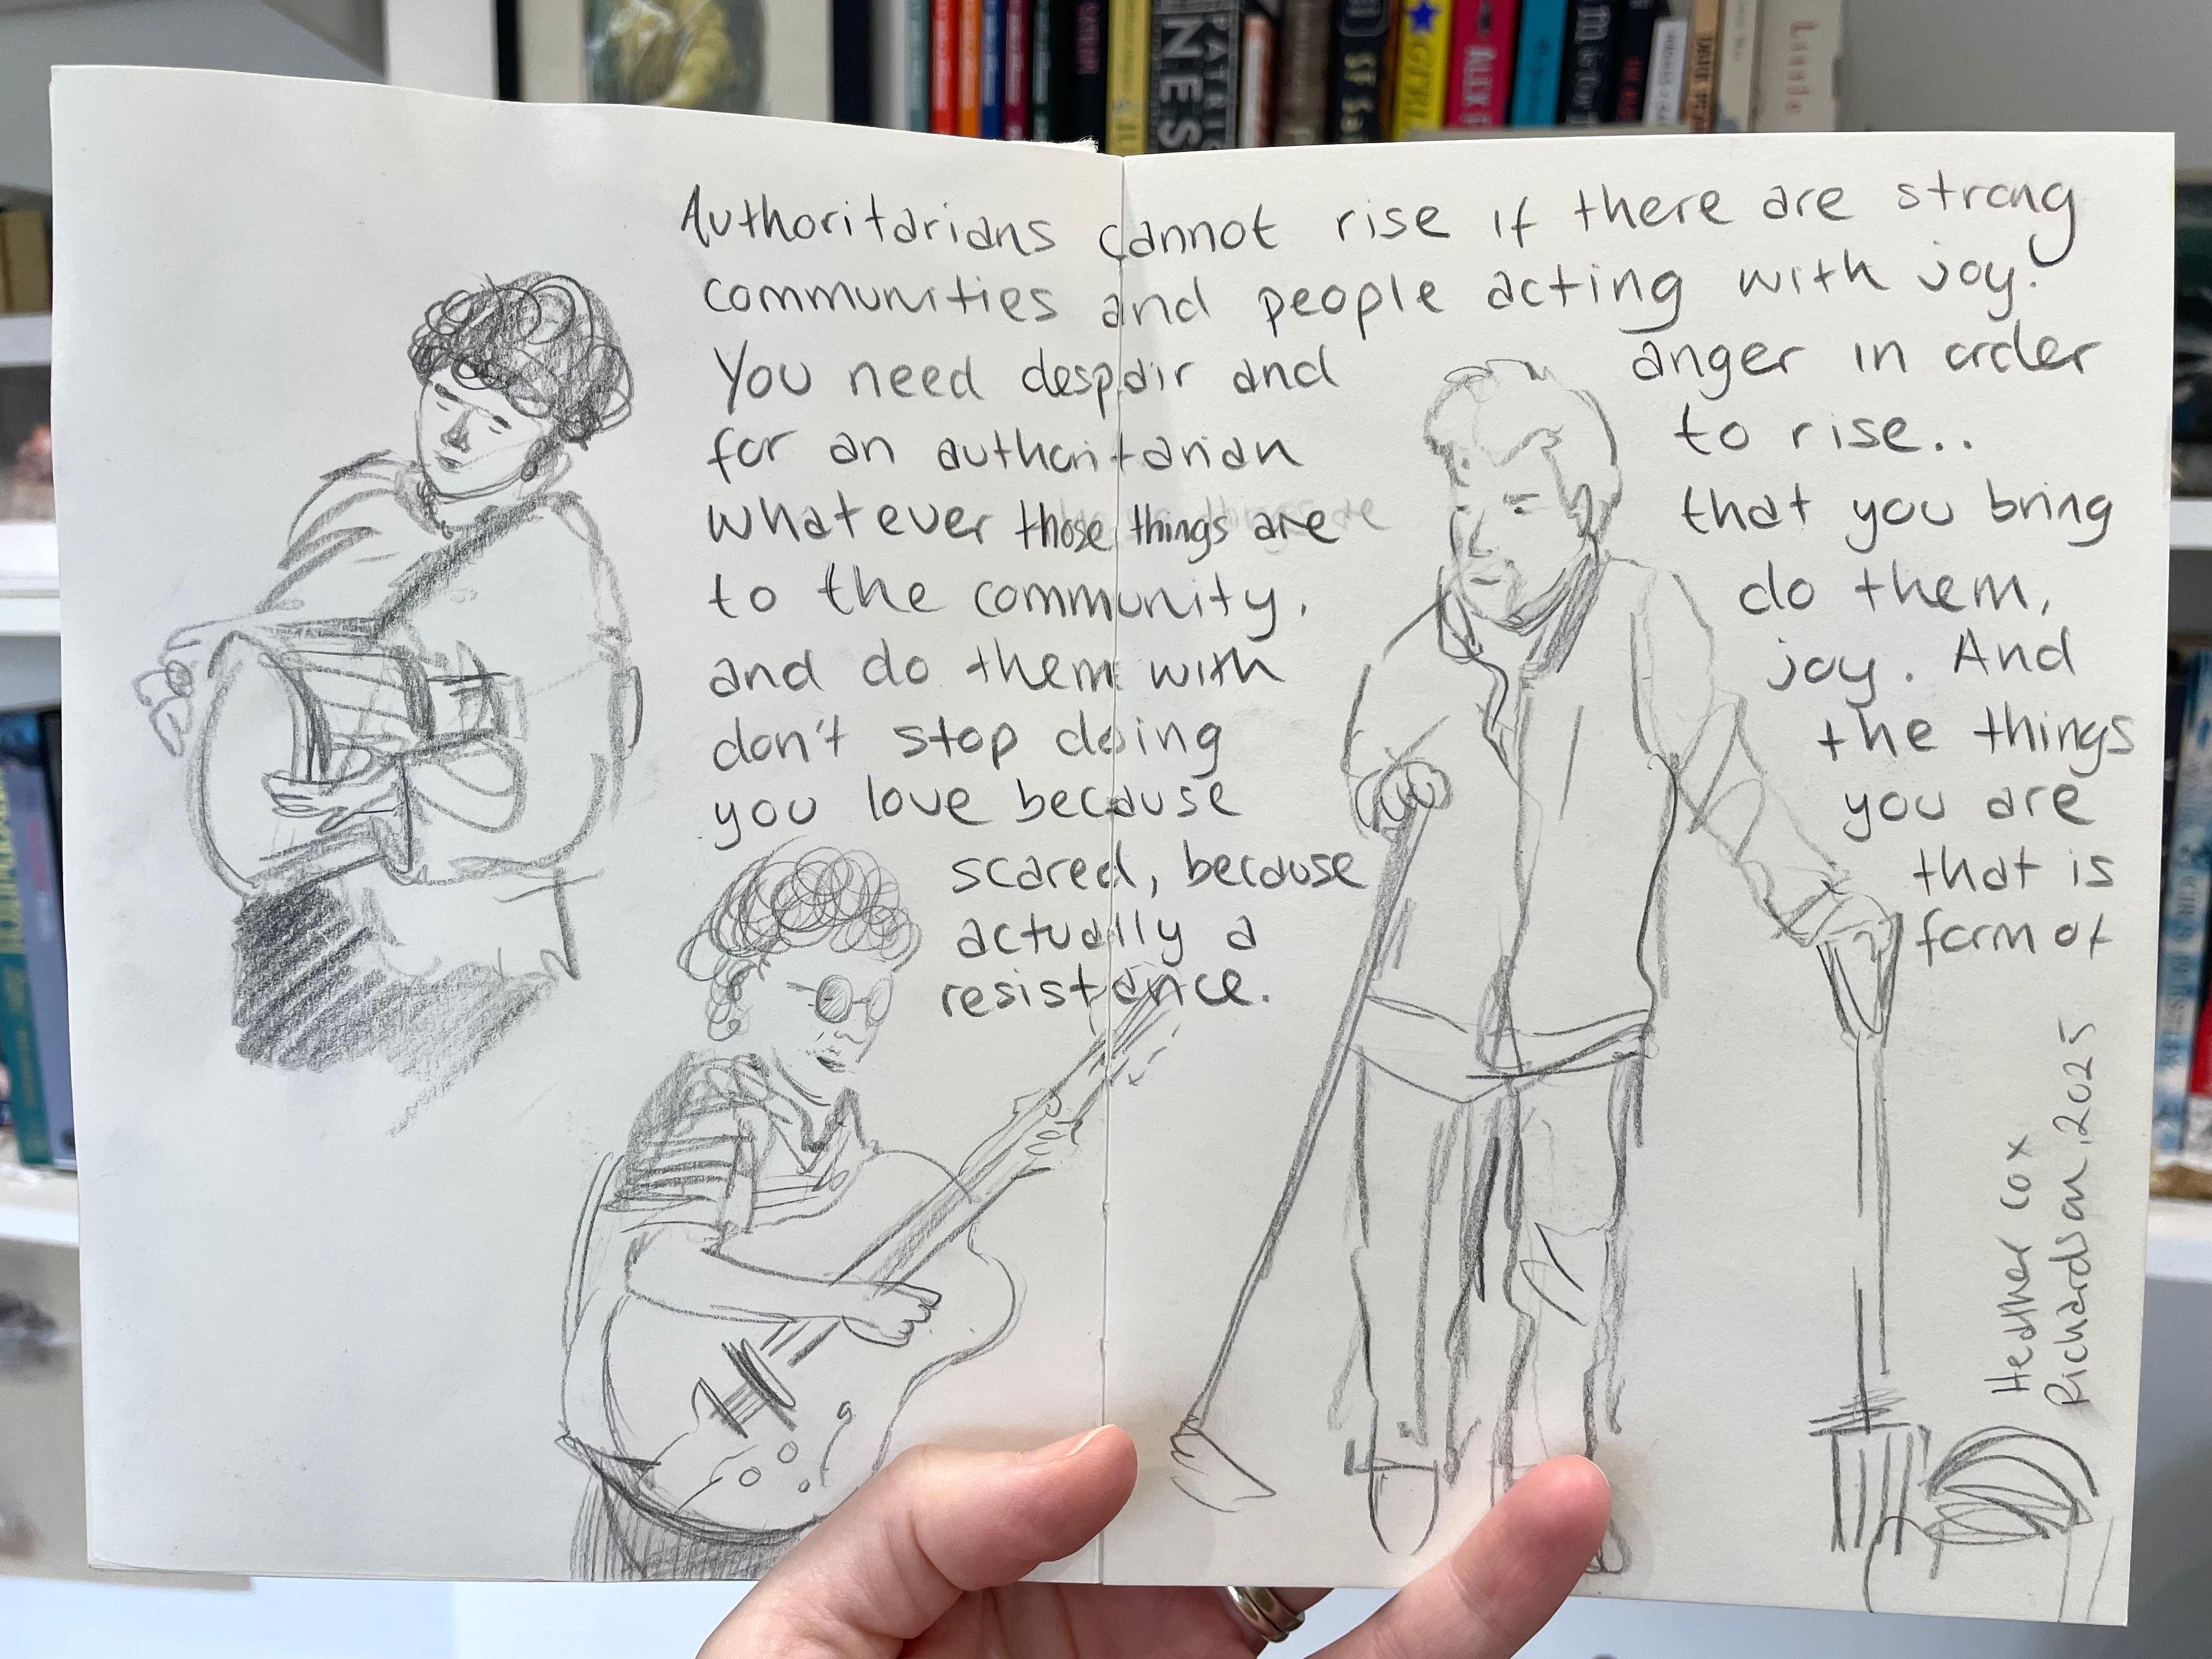 Authoritarians cannot rise if there are strong
communities and people acting with joy.
You need despair and anger in order
for an authoritarian to rise..
whatever those things are that you bring
to the community, do them,
and do them with joy. And
don't stop doing the things
you love because you are
scared, because that is
actually a form of
resistance.
Heather Cox
Richardson, 2025
NES
PATRI
SF Sa
GFFK
ALEX